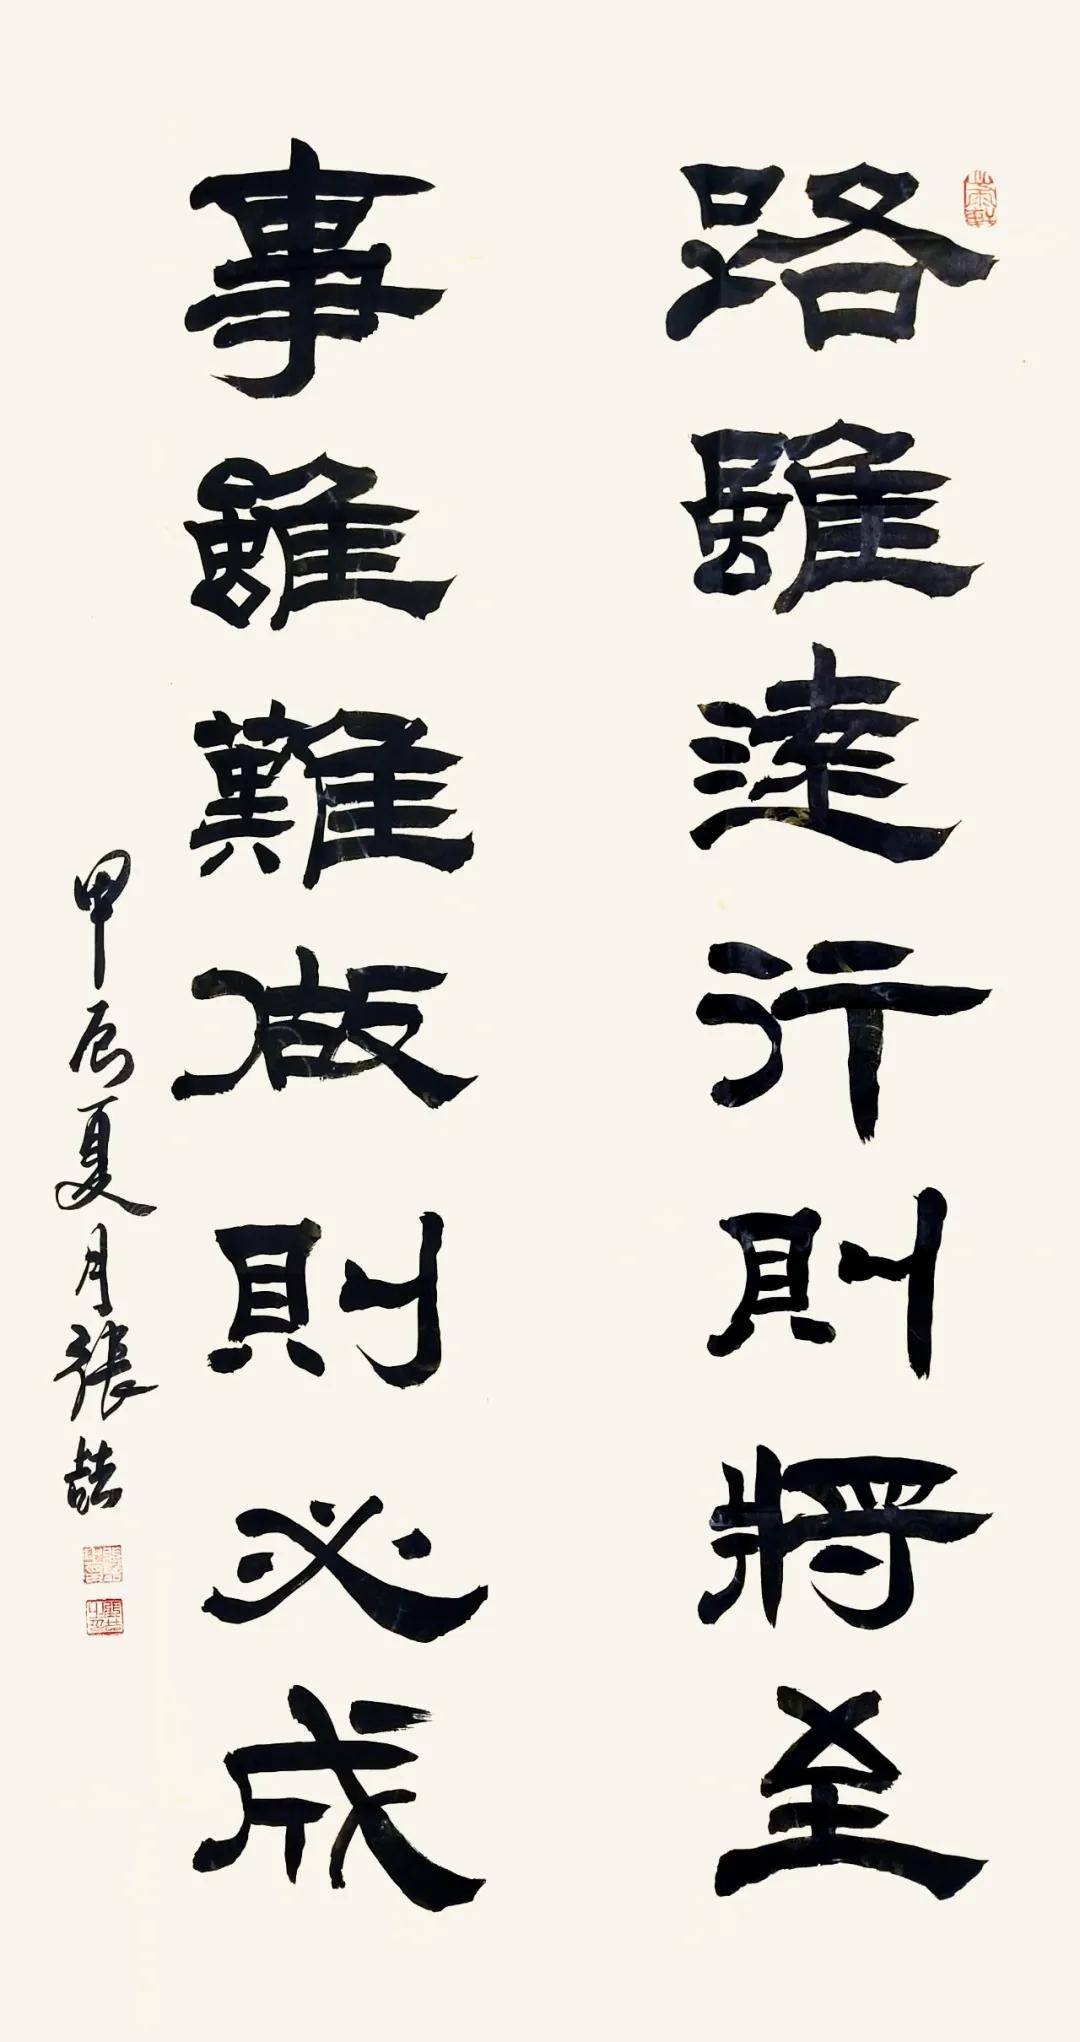 路雖達行則將至
事雖難做則必成
甲辰夏月張喆